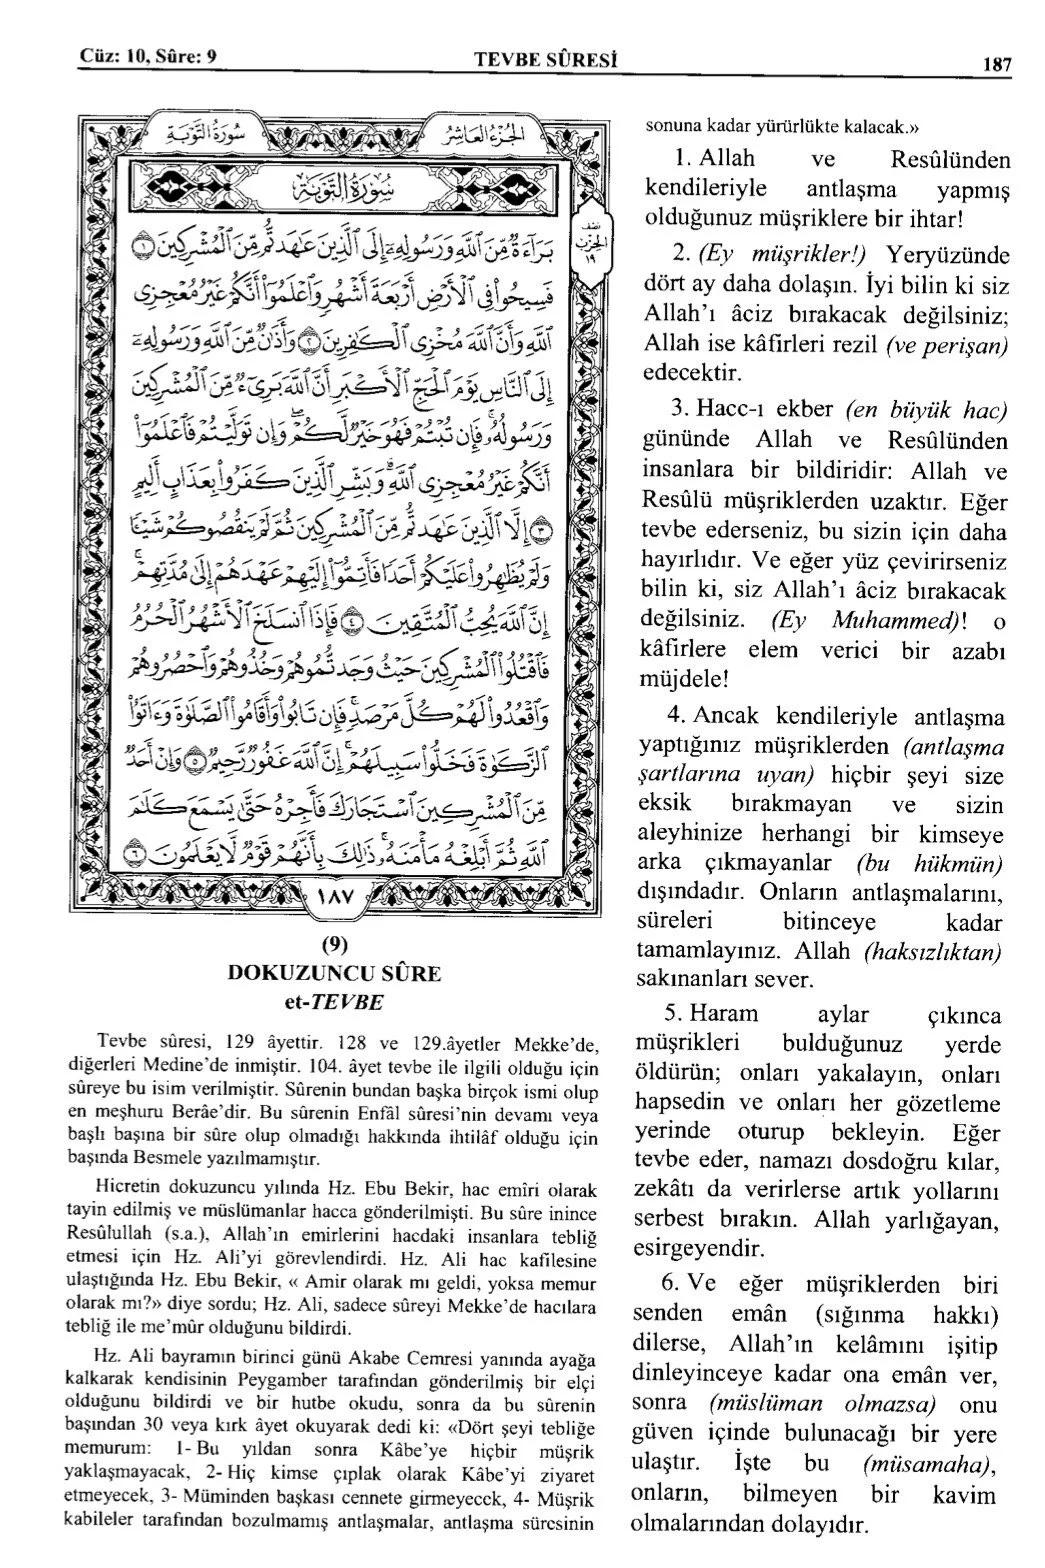 Cüz: 10, Sûre: 9
TEVBE SÛRESİ
187
سُورَةُ التَّوْبَةِ
الجُزْءُ العَاشِرُ
سُورَةُ التَّوْبَةِ
نصف
الحزب
١٩
بَرَآءَةٌ مِّنَ ٱللَّهِ وَرَسُولِهِۦٓ إِلَى ٱلَّذِينَ عَٰهَدتُّم مِّنَ ٱلْمُشْرِكِينَ ١
فَسِيحُوا۟ فِى ٱلْأَرْضِ أَرْبَعَةَ أَشْهُرٍ وَٱعْلَمُوٓا۟ أَنَّكُمْ غَيْرُ مُعْجِزِى
ٱللَّهِ وَأَنَّ ٱللَّهَ مُخْزِى ٱلْكَٰفِرِينَ ٢ وَأَذَٰنٌ مِّنَ ٱللَّهِ وَرَسُولِهِۦٓ
إِلَى ٱلنَّاسِ يَوْمَ ٱلْحَجِّ ٱلْأَكْبَرِ أَنَّ ٱللَّهَ بَرِىٓءٌ مِّنَ ٱلْمُشْرِكِينَ
وَرَسُولُهُۥ فَإِن تُبْتُمْ فَهُوَ خَيْرٌ لَّكُمْ وَإِن تَوَلَّيْتُمْ فَٱعْلَمُوٓا۟
أَنَّكُمْ غَيْرُ مُعْجِزِى ٱللَّهِ وَبَشِّرِ ٱلَّذِينَ كَفَرُوا۟ بِعَذَابٍ أَلِيمٍ
٣ إِلَّا ٱلَّذِينَ عَٰهَدتُّم مِّنَ ٱلْمُشْرِكِينَ ثُمَّ لَمْ يَنقُصُوكُمْ شَيْـًٔا
وَلَمْ يُظَٰهِرُوا۟ عَلَيْكُمْ أَحَدًا فَأَتِمُّوٓا۟ إِلَيْهِمْ عَهْدَهُمْ إِلَىٰ مُدَّتِهِمْ
إِنَّ ٱللَّهَ يُحِبُّ ٱلْمُتَّقِينَ ٤ فَإِذَا ٱنسَلَخَ ٱلْأَشْهُرُ ٱلْحُرُمُ
فَٱقْتُلُوا۟ ٱلْمُشْرِكِينَ حَيْثُ وَجَدتُّمُوهُمْ وَخُذُوهُمْ وَٱحْصُرُوهُمْ
وَٱقْعُدُوا۟ لَهُمْ كُلَّ مَرْصَدٍ فَإِن تَابُوا۟ وَأَقَامُوا۟ ٱلصَّلَوٰةَ وَءَاتَوُا۟
ٱلزَّكَوٰةَ فَخَلُّوا۟ سَبِيلَهُمْ إِنَّ ٱللَّهَ غَفُورٌ رَّحِيمٌ ٥ وَإِنْ أَحَدٌ
مِّنَ ٱلْمُشْرِكِينَ ٱسْتَجَارَكَ فَأَجِرْهُ حَتَّىٰ يَسْمَعَ كَلَٰمَ
ٱللَّهِ ثُمَّ أَبْلِغْهُ مَأْمَنَهُۥ ذَٰلِكَ بِأَنَّهُمْ قَوْمٌ لَّا يَعْلَمُونَ ٦
١٨٧
(9)
DOKUZUNCU SÛRE
et-TEVBE
Tevbe sûresi, 129 âyettir. 128 ve 129.âyetler Mekke’de,
diğerleri Medine’de inmiştir. 104. âyet tevbe ile ilgili olduğu için
sûreye bu isim verilmiştir. Sûrenin bundan başka birçok ismi olup
en meşhuru Berâe’dir. Bu sûrenin Enfâl sûresi’nin devamı veya
başlı başına bir sûre olup olmadığı hakkında ihtilâf olduğu için
başında Besmele yazılmamıştır.
Hicretin dokuzuncu yılında Hz. Ebu Bekir, hac emîri olarak
tayin edilmiş ve müslümanlar hacca gönderilmişti. Bu sûre inince
Resûlullah (s.a.), Allah’ın emirlerini hacdaki insanlara tebliğ
etmesi için Hz. Ali’yi görevlendirdi. Hz. Ali hac kafilesine
ulaştığında Hz. Ebu Bekir, « Amir olarak mı geldi, yoksa memur
olarak mı?» diye sordu; Hz. Ali, sadece sûreyi Mekke’de hacılara
tebliğ ile me’mûr olduğunu bildirdi.
Hz. Ali bayramın birinci günü Akabe Cemresi yanında ayağa
kalkarak kendisinin Peygamber tarafından gönderilmiş bir elçi
olduğunu bildirdi ve bir hutbe okudu, sonra da bu sûrenin
başından 30 veya kırk âyet okuyarak dedi ki: «Dört şeyi tebliğe
memurum: 1- Bu yıldan sonra Kâbe’ye hiçbir müşrik
yaklaşmayacak, 2- Hiç kimse çıplak olarak Kâbe’yi ziyaret
etmeyecek, 3- Müminden başkası cennete girmeyecek, 4- Müşrik
kabileler tarafından bozulmamış antlaşmalar, antlaşma süresinin
sonuna kadar yürürlükte kalacak.»
1. Allah ve Resûlünden
kendileriyle antlaşma yapmış
olduğunuz müşriklere bir ihtar!
2. (Ey müşrikler!) Yeryüzünde
dört ay daha dolaşın. İyi bilin ki siz
Allah’ı âciz bırakacak değilsiniz;
Allah ise kâfirleri rezil (ve perişan)
edecektir.
3. Hacc-ı ekber (en büyük hac)
gününde Allah ve Resûlünden
insanlara bir bildiridir: Allah ve
Resûlü müşriklerden uzaktır. Eğer
tevbe ederseniz, bu sizin için daha
hayırlıdır. Ve eğer yüz çevirirseniz
bilin ki, siz Allah’ı âciz bırakacak
değilsiniz. (Ey Muhammed)! o
kâfirlere elem verici bir azabı
müjdele!
4. Ancak kendileriyle antlaşma
yaptığınız müşriklerden (antlaşma
şartlarına uyan) hiçbir şeyi size
eksik bırakmayan ve sizin
aleyhinize herhangi bir kimseye
arka çıkmayanlar (bu hükmün)
dışındadır. Onların antlaşmalarını,
süreleri bitinceye kadar
tamamlayınız. Allah (haksızlıktan)
sakınanları sever.
5. Haram aylar çıkınca
müşrikleri bulduğunuz yerde
öldürün; onları yakalayın, onları
hapsedin ve onları her gözetleme
yerinde oturup bekleyin. Eğer
tevbe eder, namazı dosdoğru kılar,
zekâtı da verirlerse artık yollarını
serbest bırakın. Allah yarlığayan,
esirgeyendir.
6. Ve eğer müşriklerden biri
senden emân (sığınma hakkı)
dilerse, Allah’ın kelâmını işitip
dinleyinceye kadar ona emân ver,
sonra (müslüman olmazsa) onu
güven içinde bulunacağı bir yere
ulaştır. İşte bu (müsamaha),
onların, bilmeyen bir kavim
olmalarından dolayıdır.